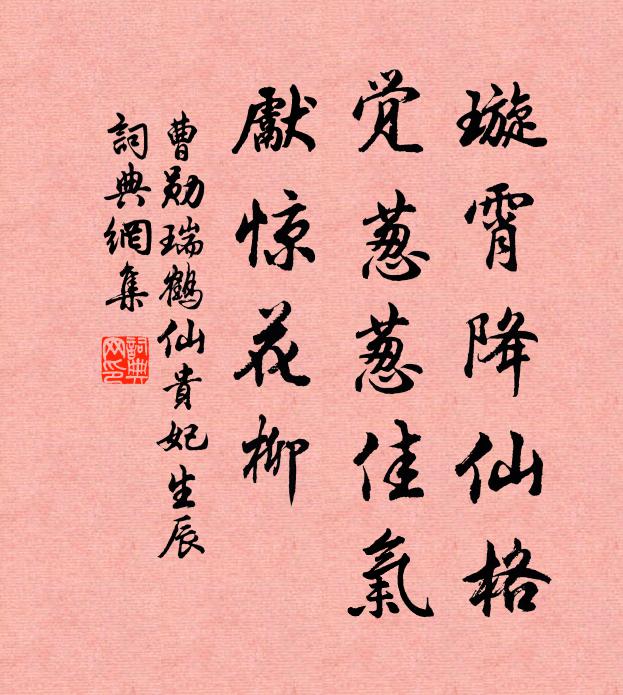 璇霄降仙格
觉葱葱佳氣
獻惊花柳
曹勋瑞鹤仙貴妃生辰
詞典網集
詞典網印